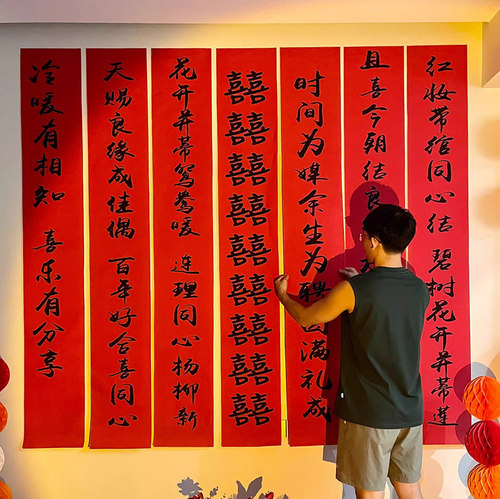 红妆带绾同心结 碧树花开并蒂莲
且喜今朝结良
时间为媒余生为聘圆满礼成
囍囍囍囍囍囍囍囍囍
花开并蒂鸳鸯暖 连理同心杨柳新
天赐良缘成佳偶 百年好合喜同心
冷暖有相知 喜乐有分享